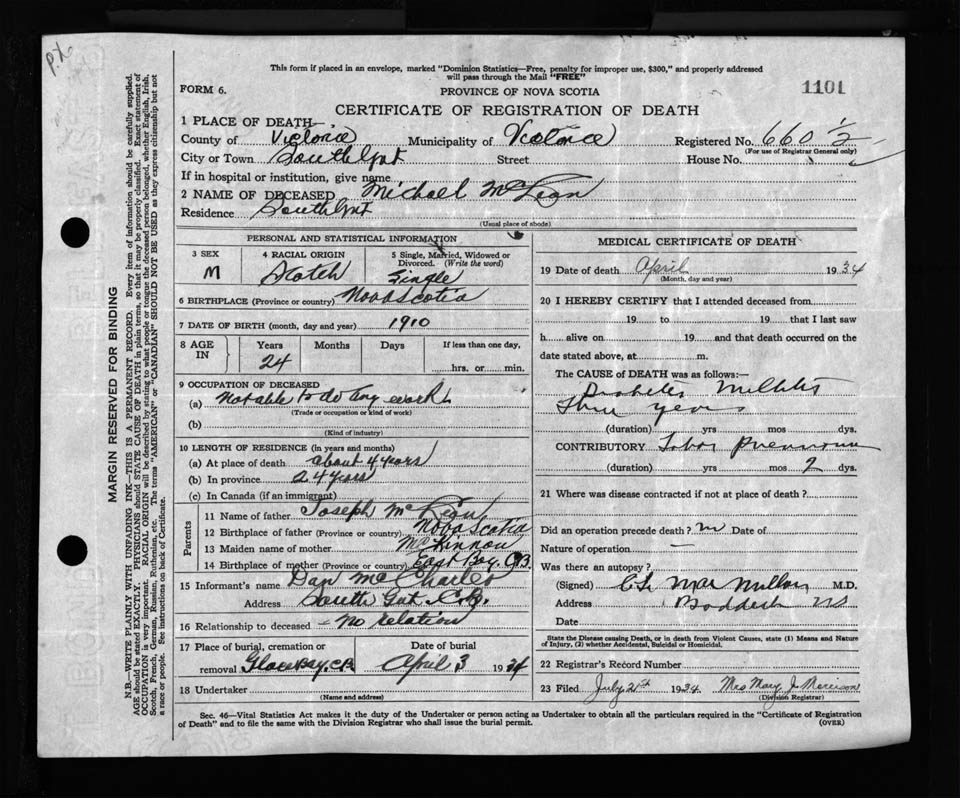 This form if placed in an envelope, marked "Dominion Statistics—Free, penalty for improper use, $300," and properly addressed
will pass through the Mail "FREE"
FORM 6. PROVINCE OF NOVA SCOTIA 1101
CERTIFICATE OF REGISTRATION OF DEATH
1 PLACE OF DEATH—
County of Victoria Municipality of Victoria Registered No. 660 1/2
(For use of Registrar General only)
City or Town South Gut Street House No.
If in hospital or institution, give name
2 NAME OF DECEASED Michael McLean
Residence South Gut
(Usual place of abode)
PERSONAL AND STATISTICAL INFORMATION
3 SEX 4 RACIAL ORIGIN 5 Single, Married, Widowed or Divorced. (Write the word)
M Scotch Single
6 BIRTHPLACE (Province or country) Nova Scotia
7 DATE OF BIRTH (month, day and year) 1910
8 AGE IN Years Months Days If less than one day,
24 hrs. or min.
9 OCCUPATION OF DECEASED
(a) Not able to do any work
(Trade or occupation or kind of work)
(b)
(Kind of industry)
10 LENGTH OF RESIDENCE (in years and months)
(a) At place of death about 4 years
(b) In province 24 years
(c) In Canada (if an immigrant)
Parents
11 Name of father Joseph McLean
12 Birthplace of father (Province or country) Nova Scotia
13 Maiden name of mother McKinnon
14 Birthplace of mother (Province or country) East Bay, C.B.
15 Informant's name Dan McCharles
Address South Gut C.B.
16 Relationship to deceased - no relation
17 Place of burial, cremation or removal Glace Bay, C.B. Date of burial April 3 1934
18 Undertaker
(Name and address)
MEDICAL CERTIFICATE OF DEATH
19 Date of death April 1934
(Month, day and year)
20 I HEREBY CERTIFY that I attended deceased from
19 to 19 that I last saw
h alive on 19 and that death occurred on the
date stated above, at m.
The CAUSE of DEATH was as follows:—
Diabetes Mellitus
Three years
(duration) yrs mos dys.
CONTRIBUTORY Lobar Pneumonia
(duration) yrs mos 2 dys.
21 Where was disease contracted if not at place of death?
Did an operation precede death? no Date of
Nature of operation —
Was there an autopsy?
(Signed) C.L. MacMillan M.D.
Address Baddeck NS
Date
State the Disease causing Death, or in death from Violent Causes, state (1) Means and Nature
of Injury, (2) whether Accidental, Suicidal or Homicidal.
22 Registrar's Record Number
23 Filed July 21st 1934 Mrs Mary J. Morrison
(Division Registrar)
Sec. 46—Vital Statistics Act makes it the duty of the Undertaker or person acting as Undertaker to obtain all the particulars required in the "Certificate of Registration
of Death" and to file the same with the Division Registrar who shall issue the burial permit. (OVER)
MARGIN RESERVED FOR BINDING
N.B.—WRITE PLAINLY WITH UNFADING INK—THIS IS A PERMANENT RECORD. Every item of information should be carefully supplied.
AGE should be stated EXACTLY. PHYSICIANS should STATE CAUSE OF DEATH in plain terms, so that it may be properly classified. Exact statement of
OCCUPATION is very important. RACIAL ORIGIN will be described by stating to what people or tongue the deceased person belonged, whether English, Irish,
Scotch, French, German, Russian, Ruthenian, etc. The terms "AMERICAN" or "CANADIAN" SHOULD NOT BE USED as they express citizenship but not
a race or people. See instructions on back of Certificate.